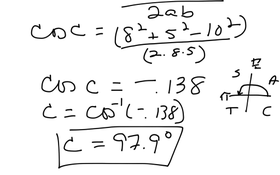 2ab
cos C = (8² + 5² - 10²)
(2·8·5)
cos C = -.138
C = cos⁻¹(-.138)
C = 97.9°
S
A
π
T
C